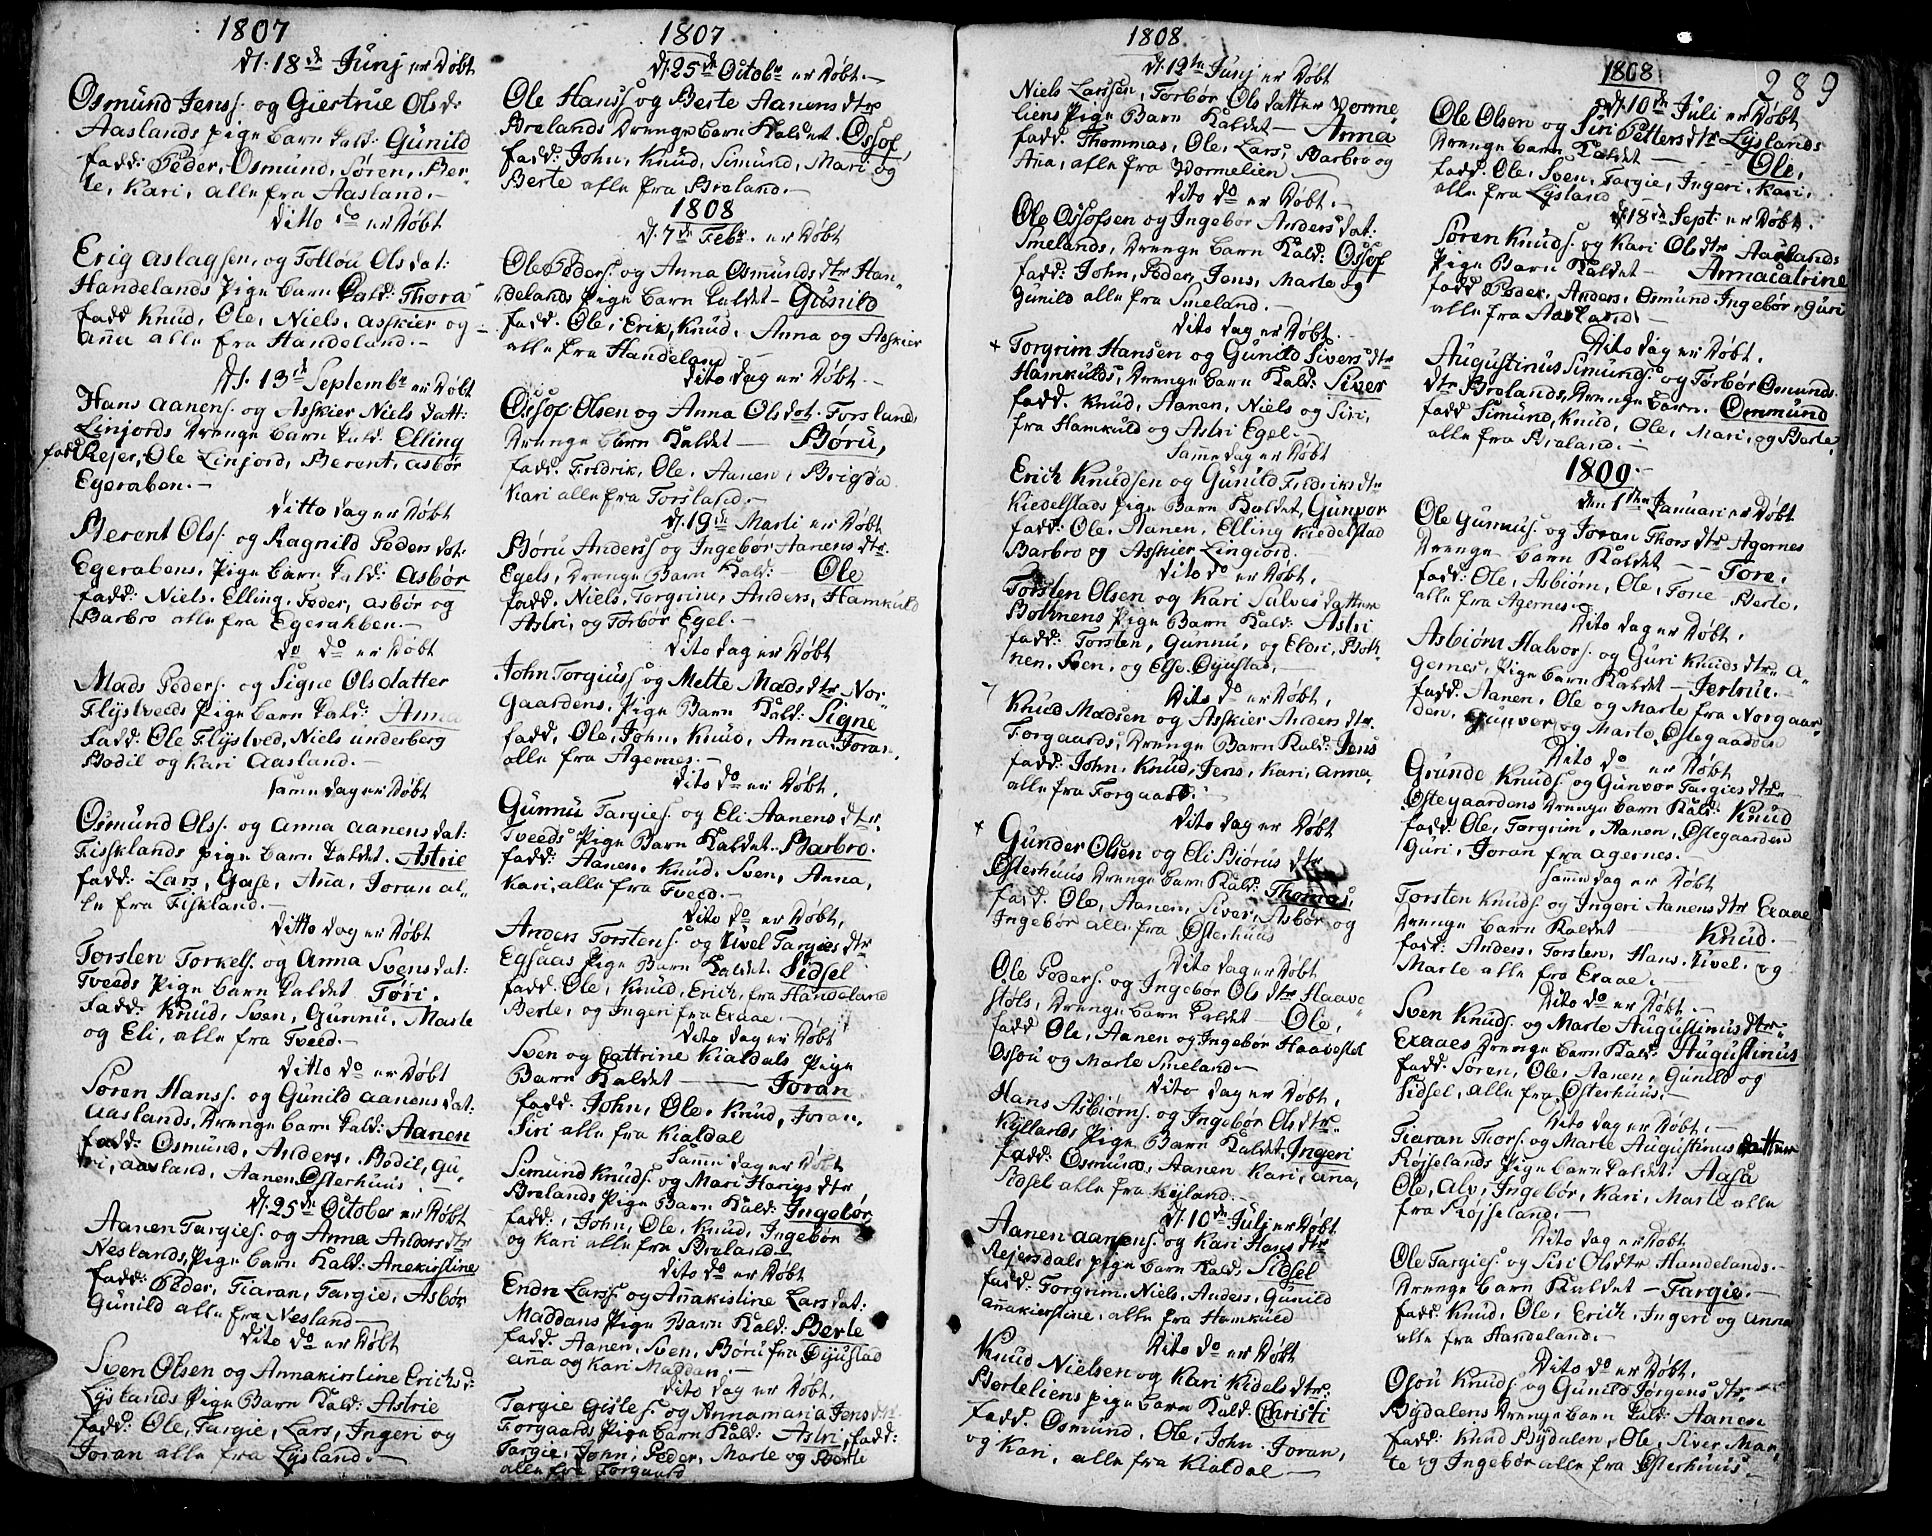 1807
d. 18de Junj er Døbt
Osmund Jens. og Giertrue Olsdr
Aaslands Pige barn kald: Gunild
fadd: Peder, Osmund, Søren, Ber-
te, Kari, alle fra Aasland.-
ditto do er Døbt
Erig Aslagsen, og Tollou Olsdat:
Handelands Pige barn kald: Thora
fadd Knud, Ole, Niels, Asskier og
Anna alle fra Handeland.-
d. 13de Septembr er Døbt
Hans Aanens. og Asskier Niels datt:
Linjords Drenge barn kald: Elling
fadd Rejer, Ole Linjord, Berent, Asbør
Egeraben.-
ditto dag er Døbt
Berent Ols. og Ragnild Peders dat:
Egerabens, Pige barn kald: Asbør
fadd: Niels, Elling, Peder, Asbør og
Barbro alle fra Egerakben.-
do do er Døbt
Mads Peders. og Signe Olsdatter
Flystveeds Pige barn kald: Anna
fadd: Ole Flystved, Niels underberg
Bodil og Kari Aasland.-
samme dag er Døbt
Osmund Ols. og Anna Aanens dat:
Fissklands Pige barn kaldet. Astrie
fadd: Lars, Gase, Ana, Joran al-
le fra Fiskland.-
ditto dag er Døbt
Torsten Torkels. og Anna Svensdat:
Tveeds Pige barn kaldet Tøri.
fadd: Knud, Sven, Gunnu, Marte
og Eli, alle fra Tveed.-
ditto do er Døbt
Søren Hans. og Gunild Aanens dat:
Aaslands, Drenge barn kald: Aanen
fadd: Osmund, Anders, Bodil, Gu-
ri, Aasland, Aanen Østerhuus
d. 25de October er Døbt
Aanen Targies. og Anna Anders dtr
Neslands, Pige barn kald: Anekirstine
fadd: Peder, Tiaran, Targie, Asbør
Gunild alle fra Nesland
dito do er Døbt
Sven Olsen og Annakirstine Erichsd:
Lyslands Pige Barn kald: Astrie
fadd: Ole, Targie, Lars, Ingeri og
Joran alle fra Lysland.-
1807
d. 25de Octobr er Døbt.-
Ole Hans. og Berte Aanens dtr
Brelands Drenge barn kaldet Ossof
fadd: John, Knud, Simund, Mari, og
Berte alle fra Breland.-
1808
d. 7de Febr. er Døbt
Ole Peders. og Anna Osmunds dtr Han-
delands Pige barn kaldet- Gunild
fadd. Ole, Erik, Knud, Anna og Asskier
alle fra Handeland
dito dag er Døbt.-
Ossof Olsen og Anna Olsdat. Forslands
Drenge barn kaldet - Børu,
fadd. Fredrik, Ole, Aanen, Brigda
Kari alle fra Forsland.-
d. 19de Marti er Døbt
Børu Anders. og Ingebør Aanens dtr.
Egels, Drenge Barn kald: Ole
fadd. Niels, Torgrim, Anders, Hamkuld
Astri, og Torbør Egel.-
dito dag er Døbt
John Torgius. og Mette Mads dtr Nor-
gaardens, Pige Barn kald: Signe
fadd, Ole, John, Knud, Anna, Joran.
alle fra Agernes.-
dito do er Døbt.
Gunnu Targies. og Eli Aanens dtr.
Tveeds Pige Barn kaldet. Barbro.
fadd: Aanen, Knud, Sven, Anna,
Kari, alle fra Tveed.-
dito do er Døbt,
Anders Torstens. og Livel Targies dtr
Egsaas Pige Barn kaldet. Sidsel
fadd: Ole, Knud, Erich, fra Handeland
Berte, og Ingeri fra Exaae.-
dito dag er Døbt
Sven og Cattrine Kialdals Pige
Barn kaldet - Joran
fadd: John, Ole, Knud, Joran,
Siri alle fra Kialdal
samme dag er Døbt
Simund Knuds. og Mari Harigs dtr
Brelands Pige Barn kald: Ingebør
fadd: John, Ole, Knud, Ingebør
og Kari alle fra Breland.-
dito do er Døbt
Endn Lars. og Anakistine Lars dat:
Maddans Pige Barn kald: Berte
fadd: Aanen, Sven, Børu fra Øyustad
Anna og Kari Maddan.-
dito dag er Døbt.
Targie Gisles. og Annamaria Jens dtr
Forgaards, Pige barn kald: Astri, fadd:
Targie, John, Peder, Marte og Berte
alle fra Forgaard
1808
d. 12te Junj er Døbt
Niels Larssen, Torbør Ols datter Vorme-
liens Pige Barn kaldet - Anna
fadd: Thommas, Ole, Lars, Barbro og
Ana, alle fra Wormelien.-
dito do er Døbt.-
Ole Ossofsen og Ingebor Anders dat:
Smelands, Drenge barn kald: Ossof
fadd: John, Peder, Jens, Marte og
Gunild alle fra Smeland.-
dito dag er Døbt.
Torgrim Hansen og Gunild Sivers dtr
Hamkulds, Drenge barn kald: Siver
fadd. Knud, Aanen, Niels og Siri,
fra Hamkuld og Astri Egel.-
Same dag er Døbt
Erich Knudsen og Gunild Fredriks dtr
Kiedelstads Pige Barn kaldet, Gunvor
fadd: Ole, Aanen, Elling Kiedelstad
Barbro og Asskier Lingiord.-
dito do er Døbt,
Torsten Olsen og Kari Salves datter
Bothnens Pige Barn kald: Astri
fadd: Torsten, Gunnu, og Eldri, Both-
nen, Sven, og Else Øyustad,-
Dito do er Døbt,
Knud Madsen og Asskier Anders dtr.
Forgaards, Drenge Barn kald: Jens
fadd: John, Knud, Jens, Kari, Anna,
alle fra Forgaard.-
dito dag er Døbt
Gunder Olsen og Eli Biørus dtr
Østerhuus Drenge barn kald: Thomas,
fadd. Ole, Aanen, Siver, Asbør og
Ingebør alle fra Østerhuus
dito dag er Døbt
Ole Peders. og Ingebor Ols dtr Haave-
støls, Drenge barn kaldet - Ole,
fadd Ole, Aanen og Ingebør Haavestøl
Ossou og Marte Smeland.-
dito dag er Døbt,
Hans Asbiørns. og Ingebør Olsdtr.
Kyllands Pige Barn kaldet, Ingeri
fadd: Osmund, Aanen Kari, Anna,
Sidsel alle fra Kyland.-
d. 10de Juli er Døbt
Aanen Aanens. og Kari Hans dtr
Rejersdals Pige barn kald: Sidsel
fadd: Torgrim, Niels, Anders, Gunild
Annakirstine, alle fra Hamkuld
dito do er Døbt
Knud Nielsen og Kari Kidels dtr:
Berteliens Pige barn kald: Christi
fadd. Osmund, Ole, John, Joran,
og Kari, alle fra Kialdal -
1808
289
d. 10de Juli er Døbt
Ole Olsen og Siri Petters dtr Lyslands
Drenge barn kaldet - Ole,
fadd: Ole, Sven, Targie, Ingeri, Kari,
alle fra Lysland
d. 18de Sept: er Døbt.
Søren Knuds. og Kari Ols dtr Aaslands
Pige Barn kaldet - Annacatrine
fadd Peder, Anders, Osmund Ingebør, Guri
alle fra Aasland.
Dito dag er Døbt.
Augustinus Simunds. og Torbør Osmunds
dtr Brelands, Drenge barn. Ommund
fadd Simund, Knud, Ole, Mari, og Berte
alle fra Breland.-
1809.-
den 1ste Januari er Døbt
Ole Gunnus. og Joran Thors dtr Agernes
Drenge barn kaldet -- Tore,
fadd: Ole, Asbiørn, Ole, Tone Berte,
alle fra Agernes.-
dito dag er Døbt,
Asbiørn Halvors. og Guri Knuds dtr A-
gernes, Pige barn kaldet - Jertrue.-
fadd: Aanen, Ole og Marte fra Norgaar-
den, Gunvor og Marte, Østegaarden
dito do er Døbt
Grunde Knuds. og Gunvor Targies dtr
Østegaardens Drenge barn kald: Knud
fadd: Ole, Torgrim, Aanen, Østegaarden
Guri, Joran fra Agernes.-
samme dag er Døbt
Torsten Knuds. og Ingeri Aanens dtr Exaae
Drenge barn kaldet - Knud.-
fadd: Anders, Torsten, Hans, Livel, og
Marte alle fra Exaae.-
dito do er Døbt.-
Sven Knuds. og Marte Augustinus dtr
Exaaes Drenge barn kald: Augustinus
fadd: Søren, Ole, Aanen, Gunild og
Sidsel, alle fra Østerhuus.-
dito dag er Døbt.-
Tiaran Thors. og Marte Augustinus datter
Røsselands, Pige barn kaldet Aasa
Ole, Alv, Ingebør, Kari, Marte alle
fra Røsseland.-
dito dag er Døbt
Ole Targies. og Siri Olsdtr Handelands.-
Drenge barn kaldet - Targie.-
fadd: Knud, Ole, Erich, Ingeri og Anna
alle fra Handeland.-
dito do er Døbt,
Osou Knuds. og Gunild Jørgens dtr
Bydalens Drenge barn kald: Aanen
fadd: Knud Bydalen, Ole, Siver, Mar-
te og Ingebør alle fra Østerhuus-